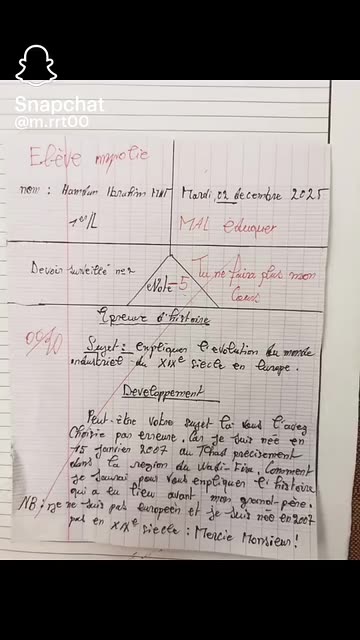 Snapchat
@m.rrt00
Elève impolie
nom : Hamdan Ibrahim
Mardi, 02 decembre 2025
1er/L
MAL éduquer
Devoir surveillé n°2
Note -5
Tu ne feras plus mon
Cours
00/20
Epreuve d'histoire
Sujet : expliquer l'evolution du monde
industriel du XIXe siècle en europe.
Developpement
Peut-être votre sujet là vous l'avez
choisie par erreure, car je suis née en
15 janvier 2007 au Tchad precisement
dans la region du Wadi-Fira. Comment
je saurai pour vous expliquer l'histoire
qui a eu lieu avant mon grand-père.
NB : je ne suis pas européen et je suis née en 2007
pas en XIXe siecle : Mercie Monsieur !